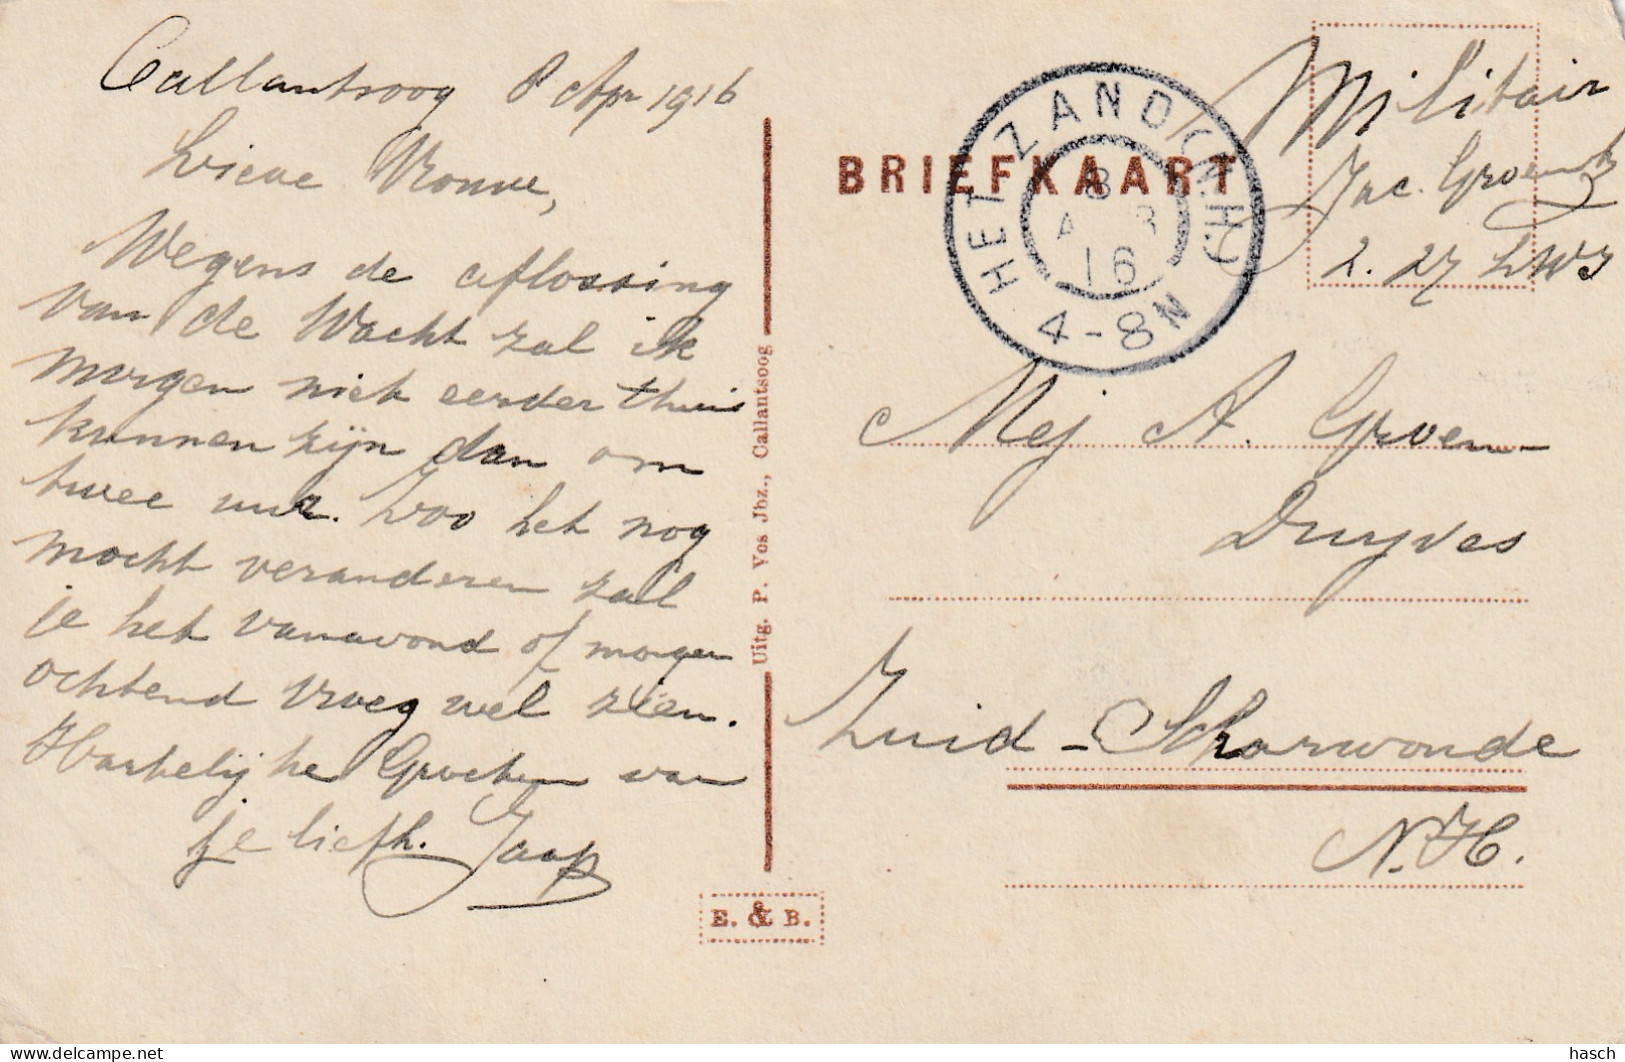 Callantsoog 8 Apr 1916
Lieve Vrouw,
Wegens de aflossing
van de Wacht zal ik
morgen niet eerder thuis
kunnen zijn dan om
twee uur. Zoo het nog
mocht veranderen zal
je het vanavond of morgen
ochtend vroeg wel zien.
Hartelijke Groeten van
je liefh. Jaap
Uitg. P. Vos Jbz., Callantsoog
E. & B.
BRIEFKAART
HET ZAND (N.H.)
8
16
4-8N
Militair
Jac. Groen
2. 27 LWI
Mej A. Groen-
Duyves
Zuid-Scharwoude
N.H.
hasch